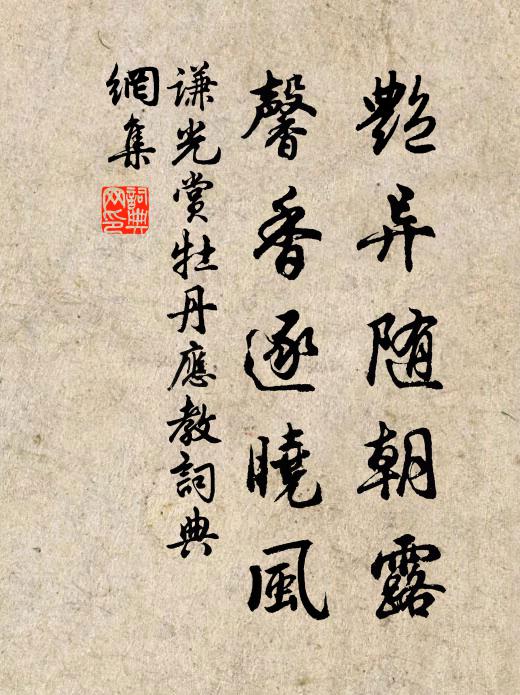 艷异随朝露
馨香逐曉風
谦光赏牡丹應教詞典
網集
詞典
网印